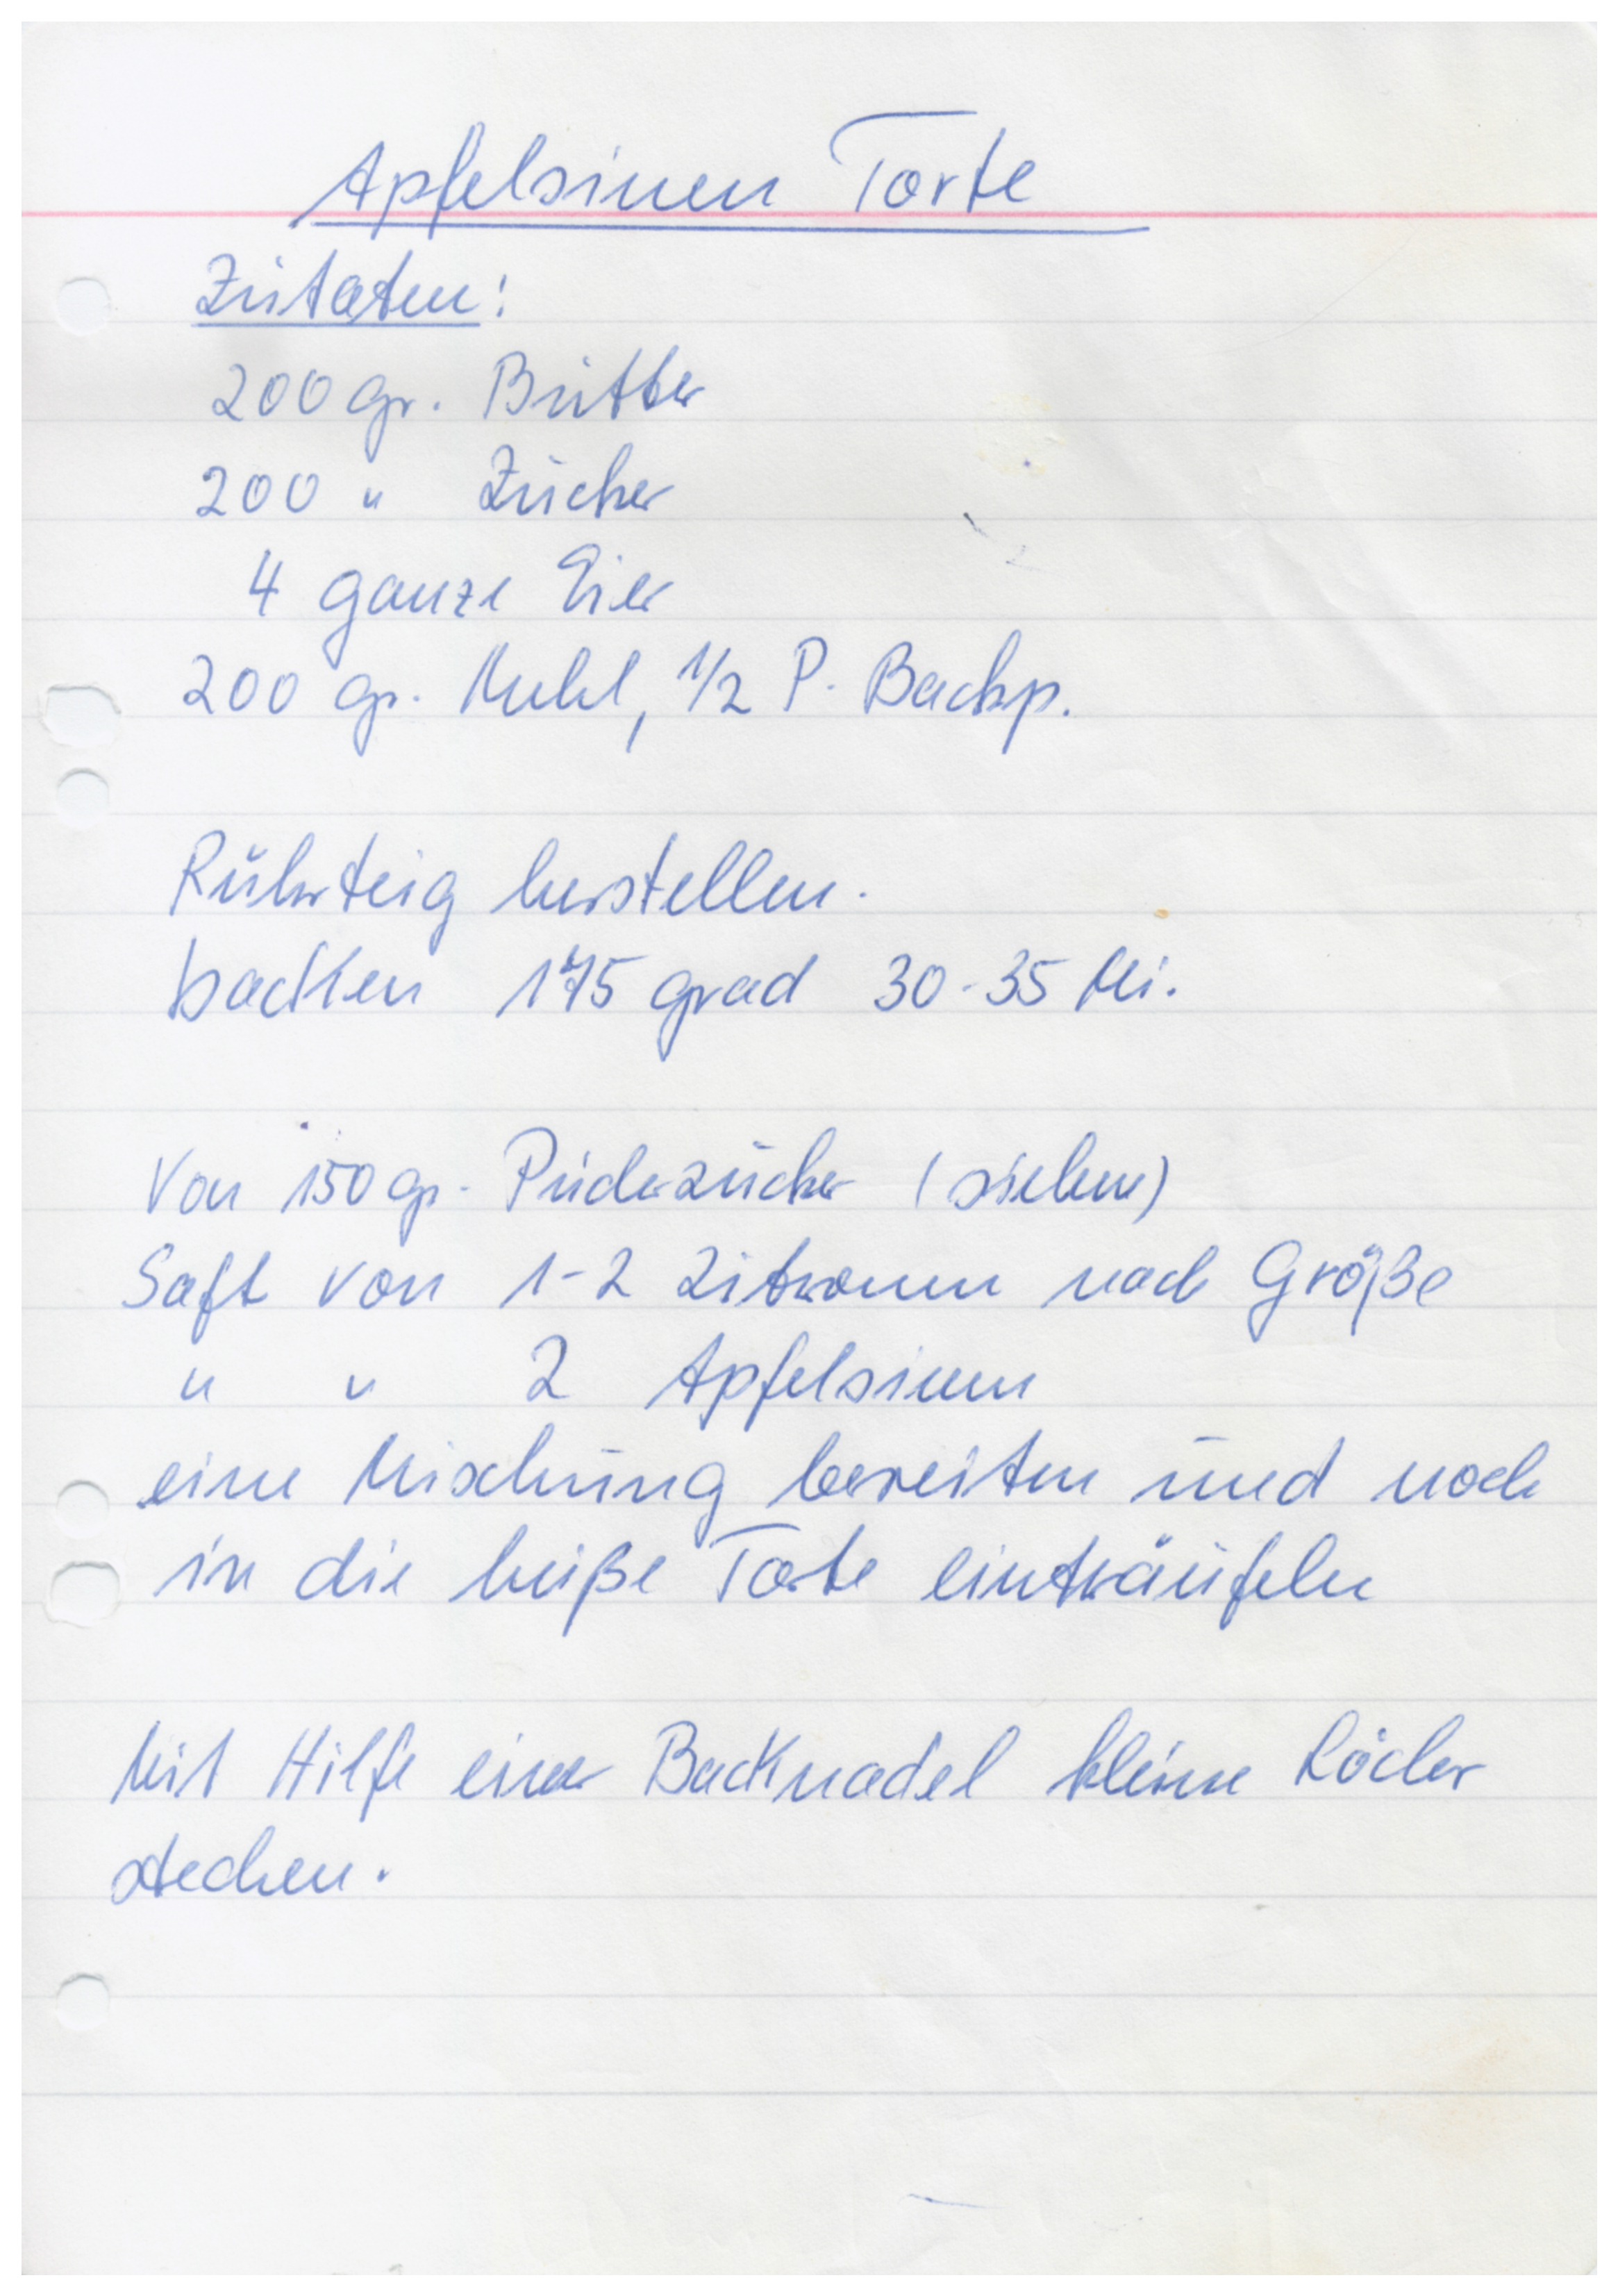 Apfelsinen Torte
Zutaten:
200 gr. Butter
200 " Zucker
4 ganze Eier
200 gr. Mehl, 1/2 P. Backp.
Rührteig herstellen.
backen 175 grad 30-35 Mi.
Von 150 gr. Puderzucker (sieben)
Saft von 1-2 Zitronen nach Größe
" " 2 Apfelsinen
eine Mischung bereiten und noch
in die heiße Torte einträufeln
Mit Hilfe einer Backnadel kleine Löcher
stechen.